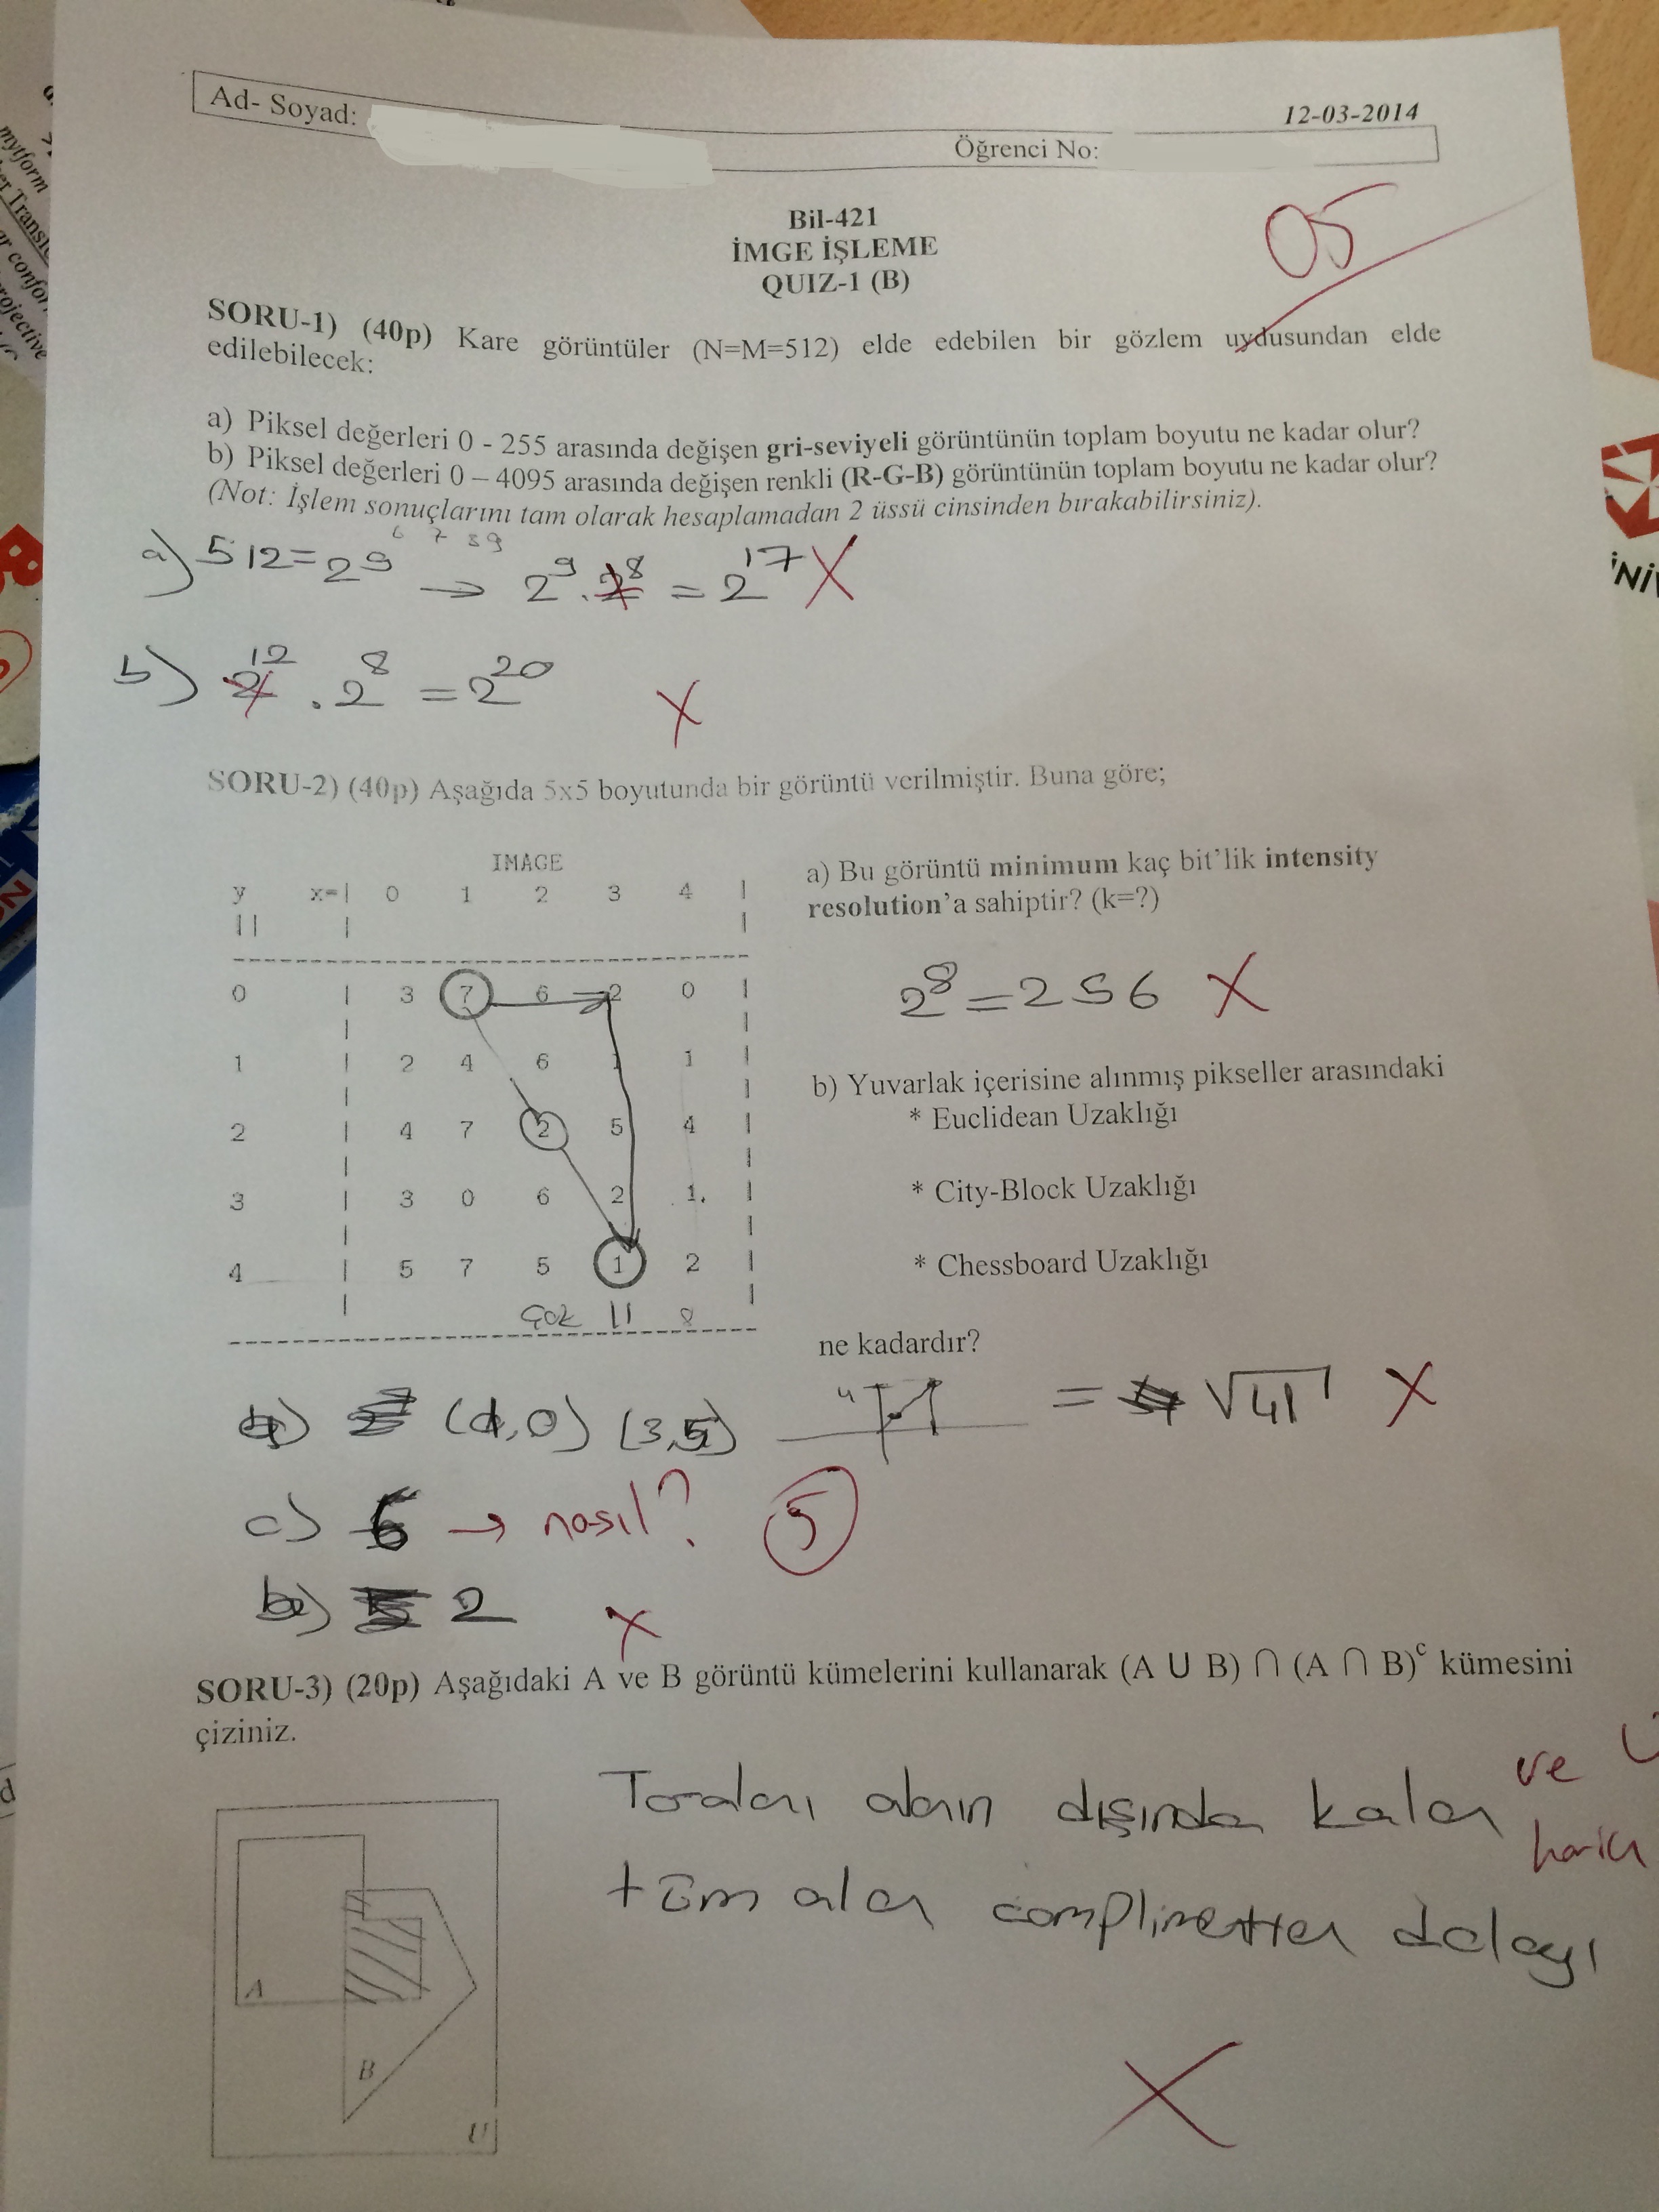 Ad- Soyad:
12-03-2014
Öğrenci No:
05
Bil-421
İMGE İŞLEME
QUIZ-1 (B)
SORU-1) (40p) Kare görüntüler (N=M=512) elde edebilen bir gözlem uydusundan elde
edilebilecek:
a) Piksel değerleri 0 - 255 arasında değişen gri-seviyeli görüntünün toplam boyutu ne kadar olur?
b) Piksel değerleri 0 – 4095 arasında değişen renkli (R-G-B) görüntünün toplam boyutu ne kadar olur?
(Not: İşlem sonuçlarını tam olarak hesaplamadan 2 üssü cinsinden bırakabilirsiniz).
6 7 8 9
a) 512=2⁹ → 2⁹.2⁸ = 2¹⁷ X
b) 2¹².2⁸ = 2²⁰ X
SORU-2) (40p) Aşağıda 5x5 boyutunda bir görüntü verilmiştir. Buna göre;
IMAGE
y x=| 0 1 2 3 4 |
|| | |
0 | 3 7 6 2 0 |
1 | 2 4 6 1 1 |
2 | 4 7 2 5 4 |
3 | 3 0 6 2 1 |
4 | 5 7 5 1 2 |
a) Bu görüntü minimum kaç bit'lik intensity
resolution'a sahiptir? (k=?)
2⁸=256 X
b) Yuvarlak içerisine alınmış pikseller arasındaki
* Euclidean Uzaklığı
* City-Block Uzaklığı
* Chessboard Uzaklığı
ne kadardır?
(1,0) (3,5) = √41 X
c) 6 → nasıl? 5
b) 2 X
SORU-3) (20p) Aşağıdaki A ve B görüntü kümelerini kullanarak (A ∪ B) ∩ (A ∩ B)ᶜ kümesini
çiziniz.
A
B
U
Taralan alanın dışında kalan ve
tüm alan dolayı
X